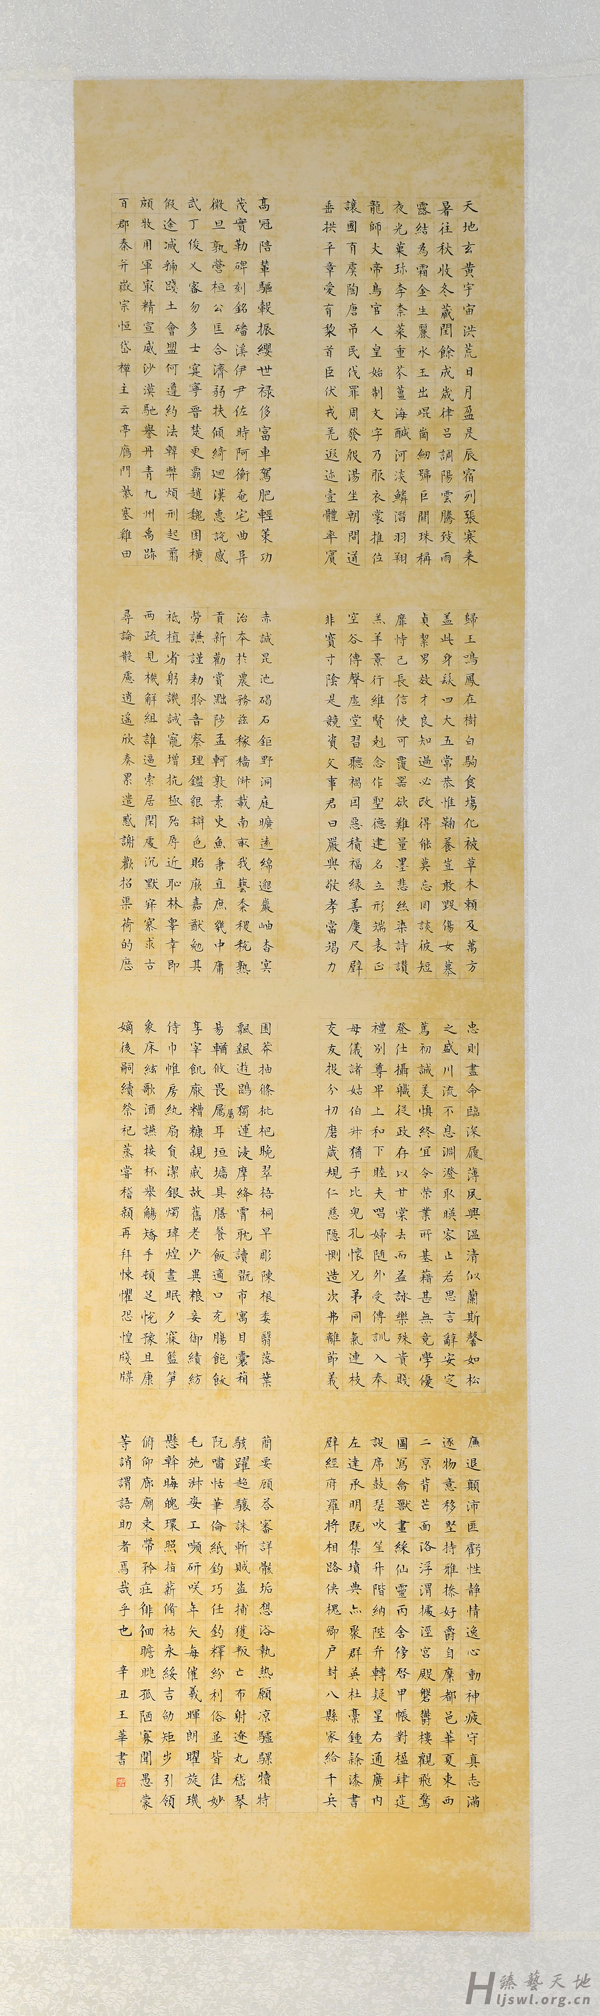 天地玄黃宇宙洪荒日月盈昃辰宿列張寒来
暑往秋收冬藏閏餘成歲律呂調陽雲騰致雨
露結為霜金生麗水玉出崐崗劒號巨闕珠稱
夜光菓珎李柰菜重芥薑海鹹河淡鱗潛羽翔
龍師火帝鳥官人皇始制文字乃服衣裳推位
讓國有虞陶唐弔民伐罪周發殷湯坐朝問道
垂拱平章愛育黎首臣伏戎羌遐迩壹體率賓
歸王鳴鳳在樹白駒食場化被草木賴及萬方
蓋此身髮四大五常恭惟鞠養豈敢毀傷女慕
貞絜男效才良知過必改得能莫忘罔談彼短
靡恃己長信使可覆器欲難量墨悲絲染詩讚
羔羊景行維賢剋念作聖德建名立形端表正
空谷傳聲虛堂習聽禍因惡積福緣善慶尺璧
非寶寸陰是競資父事君曰嚴與敬孝當竭力
忠則盡命臨深履薄夙興溫清似蘭斯馨如松
之盛川流不息淵澄取暎容止若思言辭安定
篤初誠美慎終宜令榮業所基籍甚無竟學優
登仕攝職從政存以甘棠去而益詠樂殊貴賤
禮別尊卑上和下睦夫唱婦隨外受傅訓入奉
母儀諸姑伯叔猶子比兒孔懷兄弟同氣連枝
交友投分切磨箴規仁慈隱惻造次弗離節義
廉退顛沛匪虧性靜情逸心動神疲守真志滿
逐物意移堅持雅操好爵自縻都邑華夏東西
二京背芒面洛浮渭據涇宮殿盤鬱樓觀飛驚
圖寫禽獸畫綵仙靈丙舍傍啓甲帳對楹肆筵
設席鼓瑟吹笙升階納陛弁轉疑星右通廣內
左達承明既集墳典亦聚群英杜稾鍾隸漆書
壁經府羅將相路俠槐卿戶封八縣家給千兵
高冠陪輦驅轂振纓世祿侈富車駕肥輕策功
茂實勒碑刻銘磻溪伊尹佐時阿衡奄宅曲阜
微旦孰營桓公匡合濟弱扶傾綺迴漢惠說感
武丁俊乂密勿多士寔寧晉楚更霸趙魏困橫
假途滅虢踐土會盟何遵約法韓弊煩刑起翦
頗牧用軍最精宣威沙漠馳譽丹青九州禹跡
百郡秦并嶽宗恒岱禪主云亭鴈門紫塞雞田
赤誠昆池碣石鉅野洞庭曠遠綿邈巖岫杳冥
治本於農務茲稼穡俶載南畝我藝黍稷稅熟
貢新勸賞黜陟孟軻敦素史魚秉直庶幾中庸
勞謙謹勑聆音察理鑑貌辯色貽厥嘉猷勉其
祗植省躬譏誡寵增抗極殆辱近恥林皋幸即
兩疏見機解組誰逼索居閑處沉默寂寥求古
尋論散慮逍遙欣奏累遣慼謝歡招渠荷的歷
園莽抽條枇杷晚翠梧桐早彫陳根委翳落葉
飄颻遊鵾獨運淩摩絳霄耽讀翫市寓目囊箱
易輶攸畏屬耳垣墻具膳餐飯適口充腸飽飫
享宰飢厭糟糠親戚故舊老少異粮妾御績紡
侍巾帷房紈扇員潔銀燭煒煌晝眠夕寐籃笋
象床絃歌酒讌接杯舉觴矯手頓足悅豫且康
嫡後嗣續祭祀蒸嘗稽顙再拜悚懼恐惶牋牒
簡要顧荅審詳骸垢想浴執熱願涼驢騾犢特
駭躍超驤誅斬賊盜捕獲叛亡布射遼丸嵇琴
阮嘯恬筆倫紙鈞巧任釣釋紛利俗並皆佳妙
毛施淑姿工嚬研咲年矢每催羲暉朗曜旋璣
懸斡晦魄環照指薪脩祜永綏吉劭矩步引領
俯仰廊廟束帶矜莊俳佪瞻眺孤陋寡聞愚蒙
等誚謂語助者焉哉乎也 辛丑王華書
臻藝天地
ljswl.org.cn